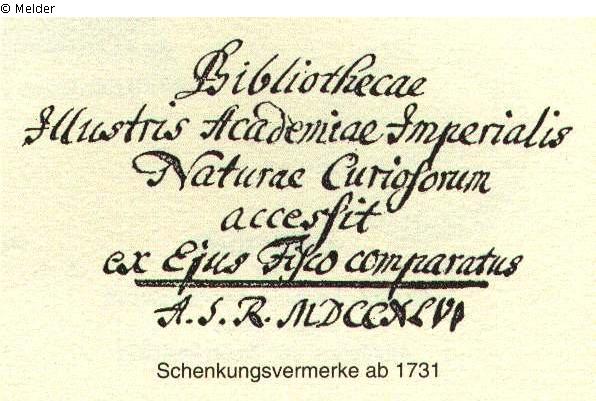 © Melder
Bibliothecae
Illustris Academiae Imperialis
Naturae Curiosorum
accessit
ex Ejus Fisco comparatus
A. S. R. MDCCXLVI
Schenkungsvermerke ab 1731